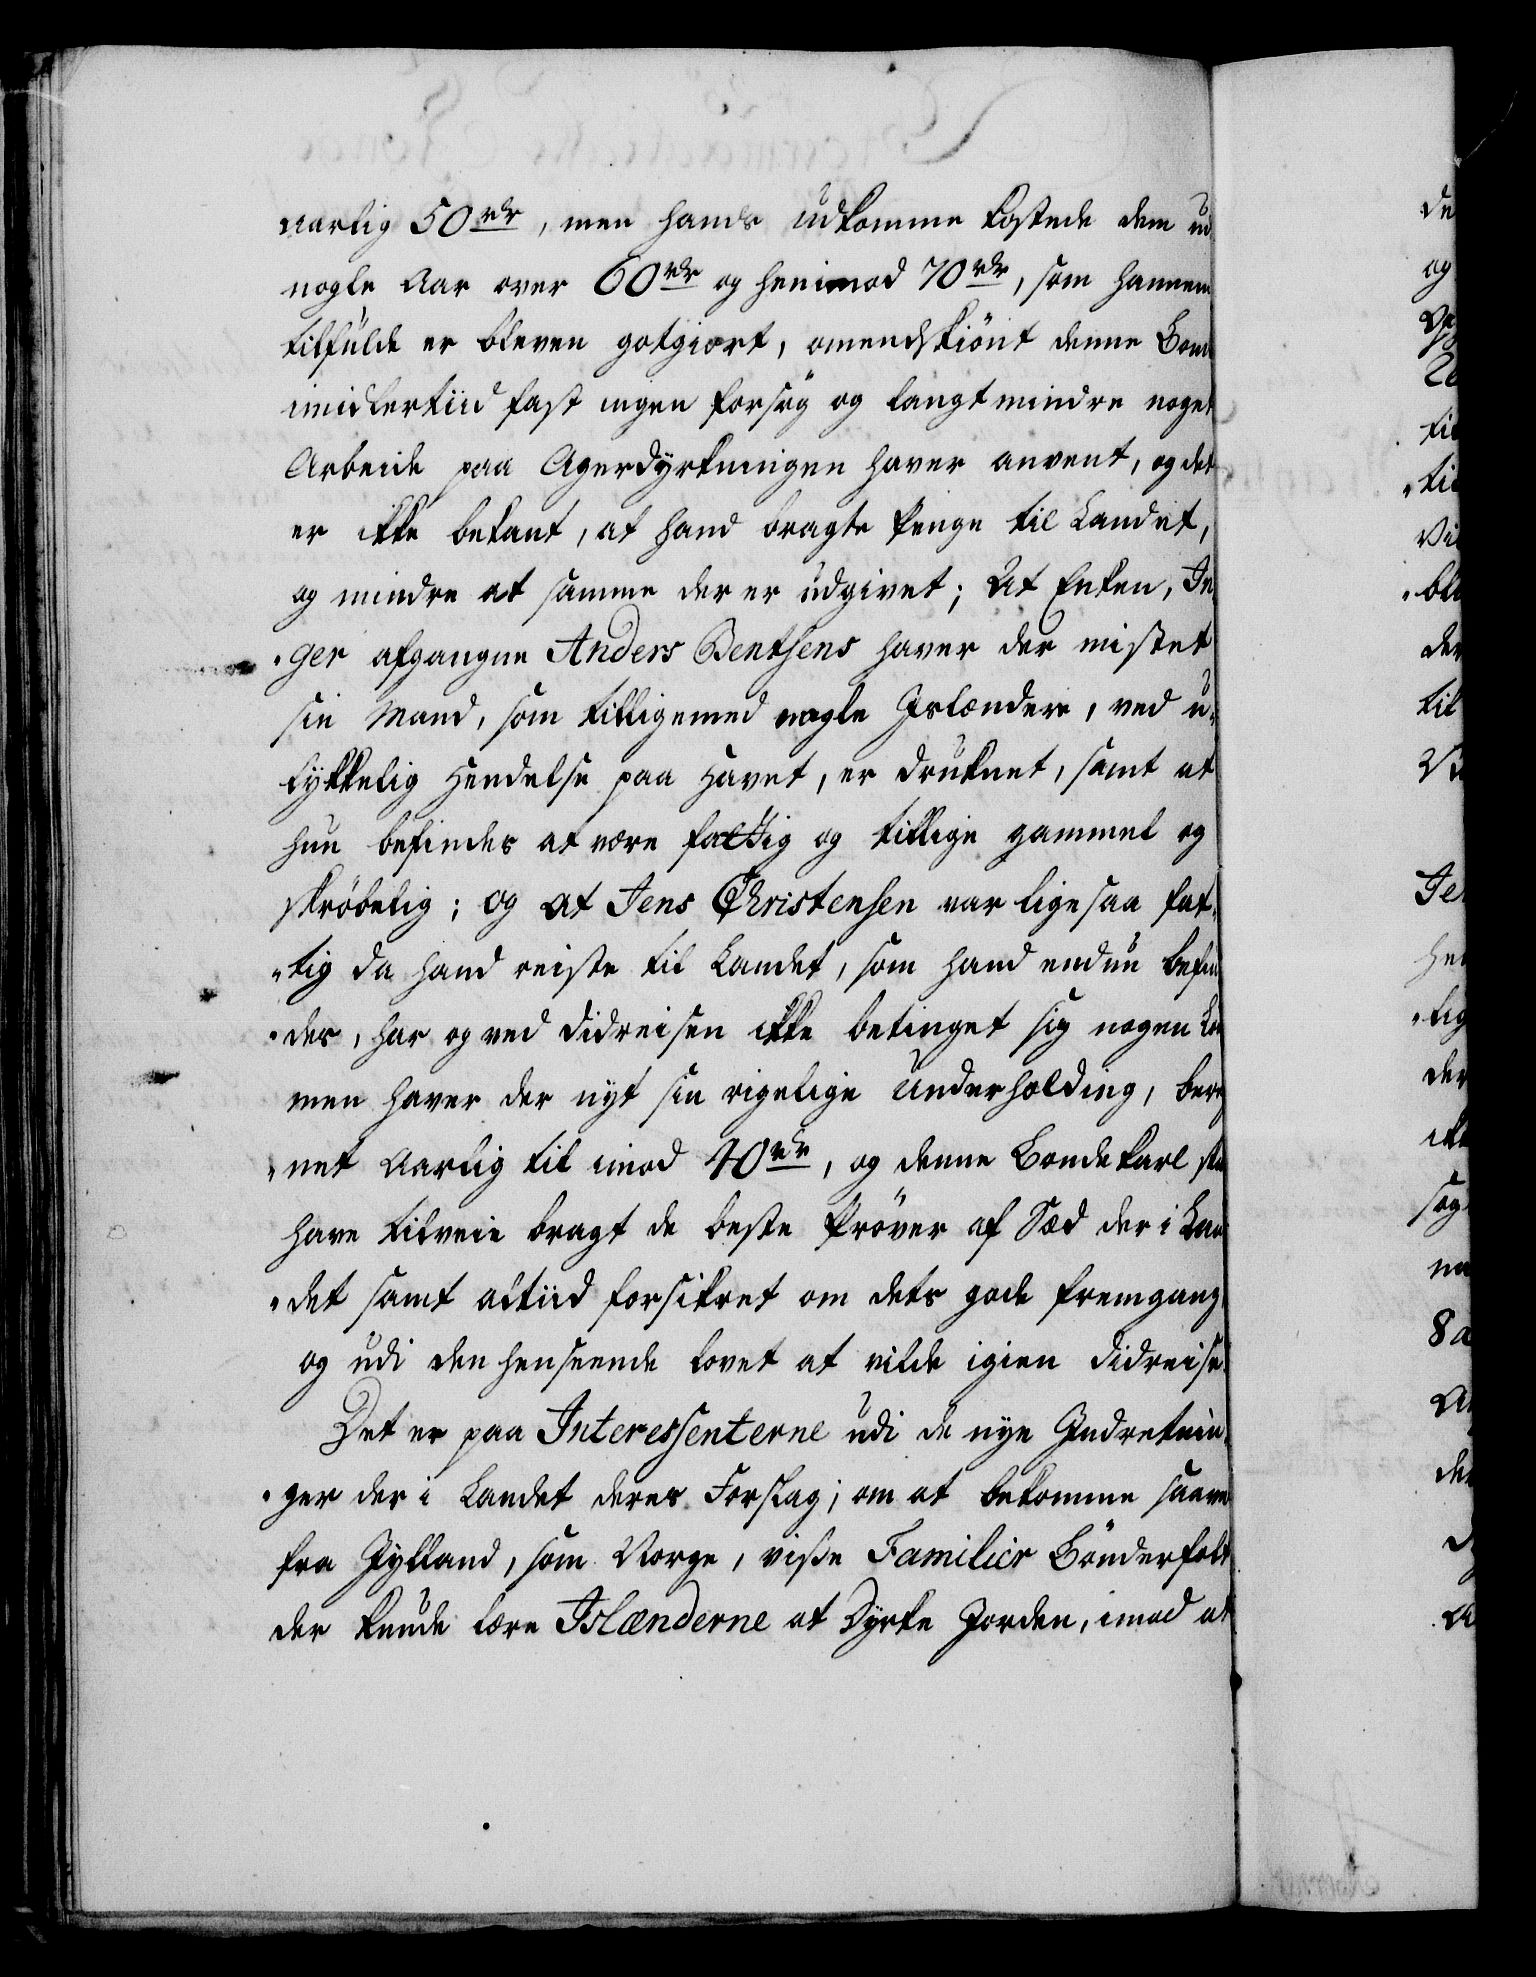 aarlig 50 rdr, men hands udkomme kostede dem ud
nogle Aar over 60 rdr og henimod 70 rdr, som hannem
tilfulde er bleven gotgiort, omendskiönt denne Bond
imidlertiid fast ingen forsög og langt mindre noget
Arbeide paa Agerdyrkningen haver anvent, og det
er ikke bekant, at hand bragte Penge til Landet,
og mindre at samme der er udgivet; At Enken, In„
„ger afgangne Anders Bentsens haver der mistet
sin Mand, som tilligemed nogle Jslændere, ved u„
lykkelig Hendelse paa Havet, er druknet, samt at
hun befindes at være fattig og tillige gammel og
skröbelig; og at Jens Christensen var ligesaa fat„
„tig da hand reiste til Landet, som hand endnu befin
„des, har og ved didreisen ikke betinget sig nogen
men haver der nyt sin rigelige Underholding, bereg
„net Aarlig til imod 40 rdr, og denne Bondekarl
have tilveie bragt de beste Pröver af Sæd der i Lan
„det samt altiid forsikret om dets gode fremgang,
og udi den henseende lovet at vilde igien didreise.
Det er paa Interessenterne udi de nye Indretnin„
„ger der i Landet deres Forslag; om at bekomme saavel
fra Jylland, som Norge, visse Familier Bönderfolk
der kunde lære Islænderne at Dyrke Jorden, imod at